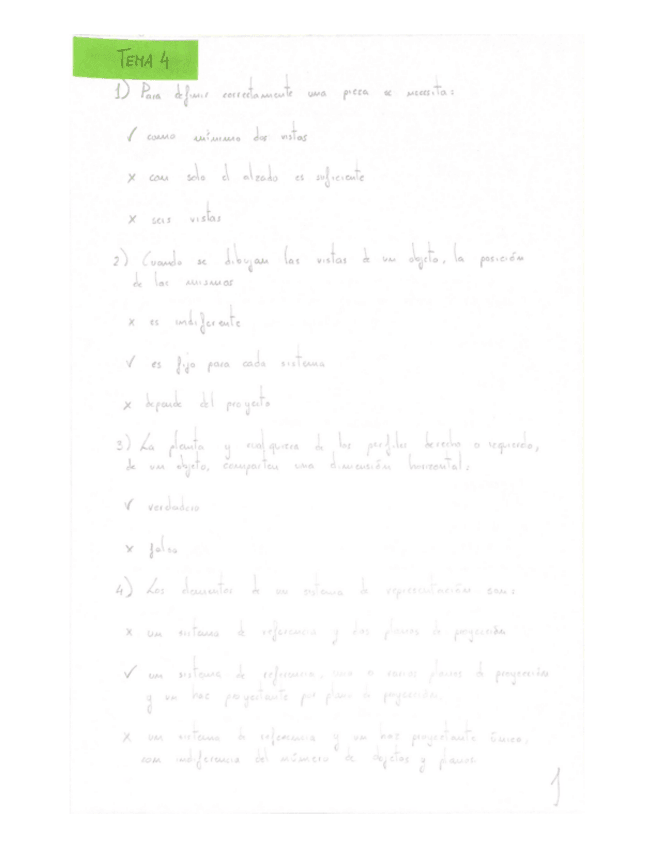 TEMA 4
1) Para definir correctamente una pieza se necesita:
✓ como mínimo dos vistas
x con solo el alzado es suficiente
x seis vistas
2) Cuando se dibujan las vistas de un objeto, la posición
de las mismas
x es indiferente
✓ es fijo para cada sistema
x depende del proyecto
3) La planta y cualquiera de los perfiles derecho o izquierdo,
de un objeto, comparten una dimensión horizontal:
✓ verdadero
x falso
4) Los elementos de un sistema de representación son:
x un sistema de referencia y dos planos de proyección
✓ un sistema de referencia, uno o varios planos de proyección
y un haz proyectante por plano de proyección.
x un sistema de referencia y un haz proyectante único,
con indiferencia del número de objetos y planos
1